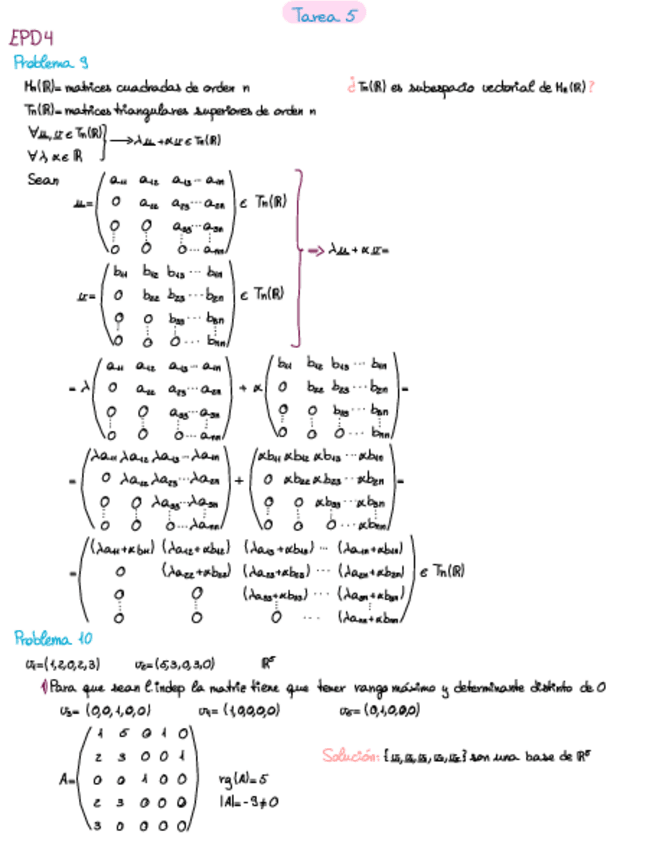 Tarea 5
EPD4
Problema 9
Mn(ℝ)= matrices cuadradas de orden n
¿Tn(ℝ) es subespacio vectorial de Mn(ℝ)?
Tn(ℝ)= matrices triangulares superiores de orden n
∀u, v ∈ Tn(ℝ)
∀λ, α ∈ ℝ } → λu + αv ∈ Tn(ℝ)
Sean
u=
a11 a12 a13 ... a1n
0 a22 a23 ... a2n
0 0 a33 ... a3n
0 0 0 ... ann
∈ Tn(ℝ)
⇒ λu + αv =
v=
b11 b12 b13 ... b1n
0 b22 b23 ... b2n
0 0 b33 ... b3n
0 0 0 ... bnn
∈ Tn(ℝ)
= λ
a11 a12 a13 ... a1n
0 a22 a23 ... a2n
0 0 a33 ... a3n
0 0 0 ... ann
+ α
b11 b12 b13 ... b1n
0 b22 b23 ... b2n
0 0 b33 ... b3n
0 0 0 ... bnn
=
=
λa11 λa12 λa13 ... λa1n
0 λa22 λa23 ... λa2n
0 0 λa33 ... λa3n
0 0 0 ... λann
+
αb11 αb12 αb13 ... αb1n
0 αb22 αb23 ... αb2n
0 0 αb33 ... αb3n
0 0 0 ... αbnn
=
=
(λa11+αb11) (λa12+αb12) (λa13+αb13) ... (λa1n+αb1n)
0 (λa22+αb22) (λa23+αb23) ... (λa2n+αb2n)
0 0 (λa33+αb33) ... (λa3n+αb3n)
0 0 0 ... (λann+αbnn)
∈ Tn(ℝ)
Problema 10
v1=(1,2,0,2,3) v2=(5,3,0,3,0) ℝ5
1) Para que sean l.indep la matriz tiene que tener rango máximo y determinante distinto de 0
v3= (0,0,1,0,0) v4= (1,0,0,0,0) v5= (0,1,0,0,0)
A=
1 5 0 1 0
2 3 0 0 1
0 0 1 0 0
2 3 0 0 0
3 0 0 0 0
rg(A)=5
|A|=-9≠0
Solución: {v1,v2,v3,v4,v5} son una base de ℝ5